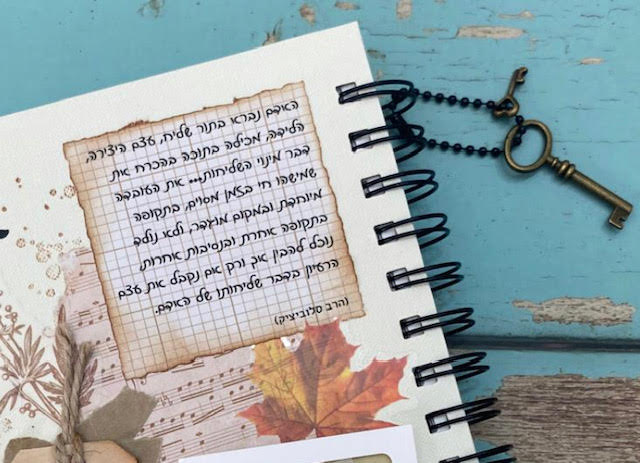 האדם נברא בתור שליח, עצם היצירה,
הלידה, מכילה בתוכה בהכרח את
דבר מינוי השליחות... את העובדה
שמישהו חי בזמן מסוים, בתקופה
מיוחדת ובמקום מוגדר, ולא נולד
בתקופה אחרת ובנסיבות אחרות,
נוכל להבין אך ורק אם נקבל את עצם
הרעיון בדבר שליחותו של האדם.
(הרב סלוביציק)